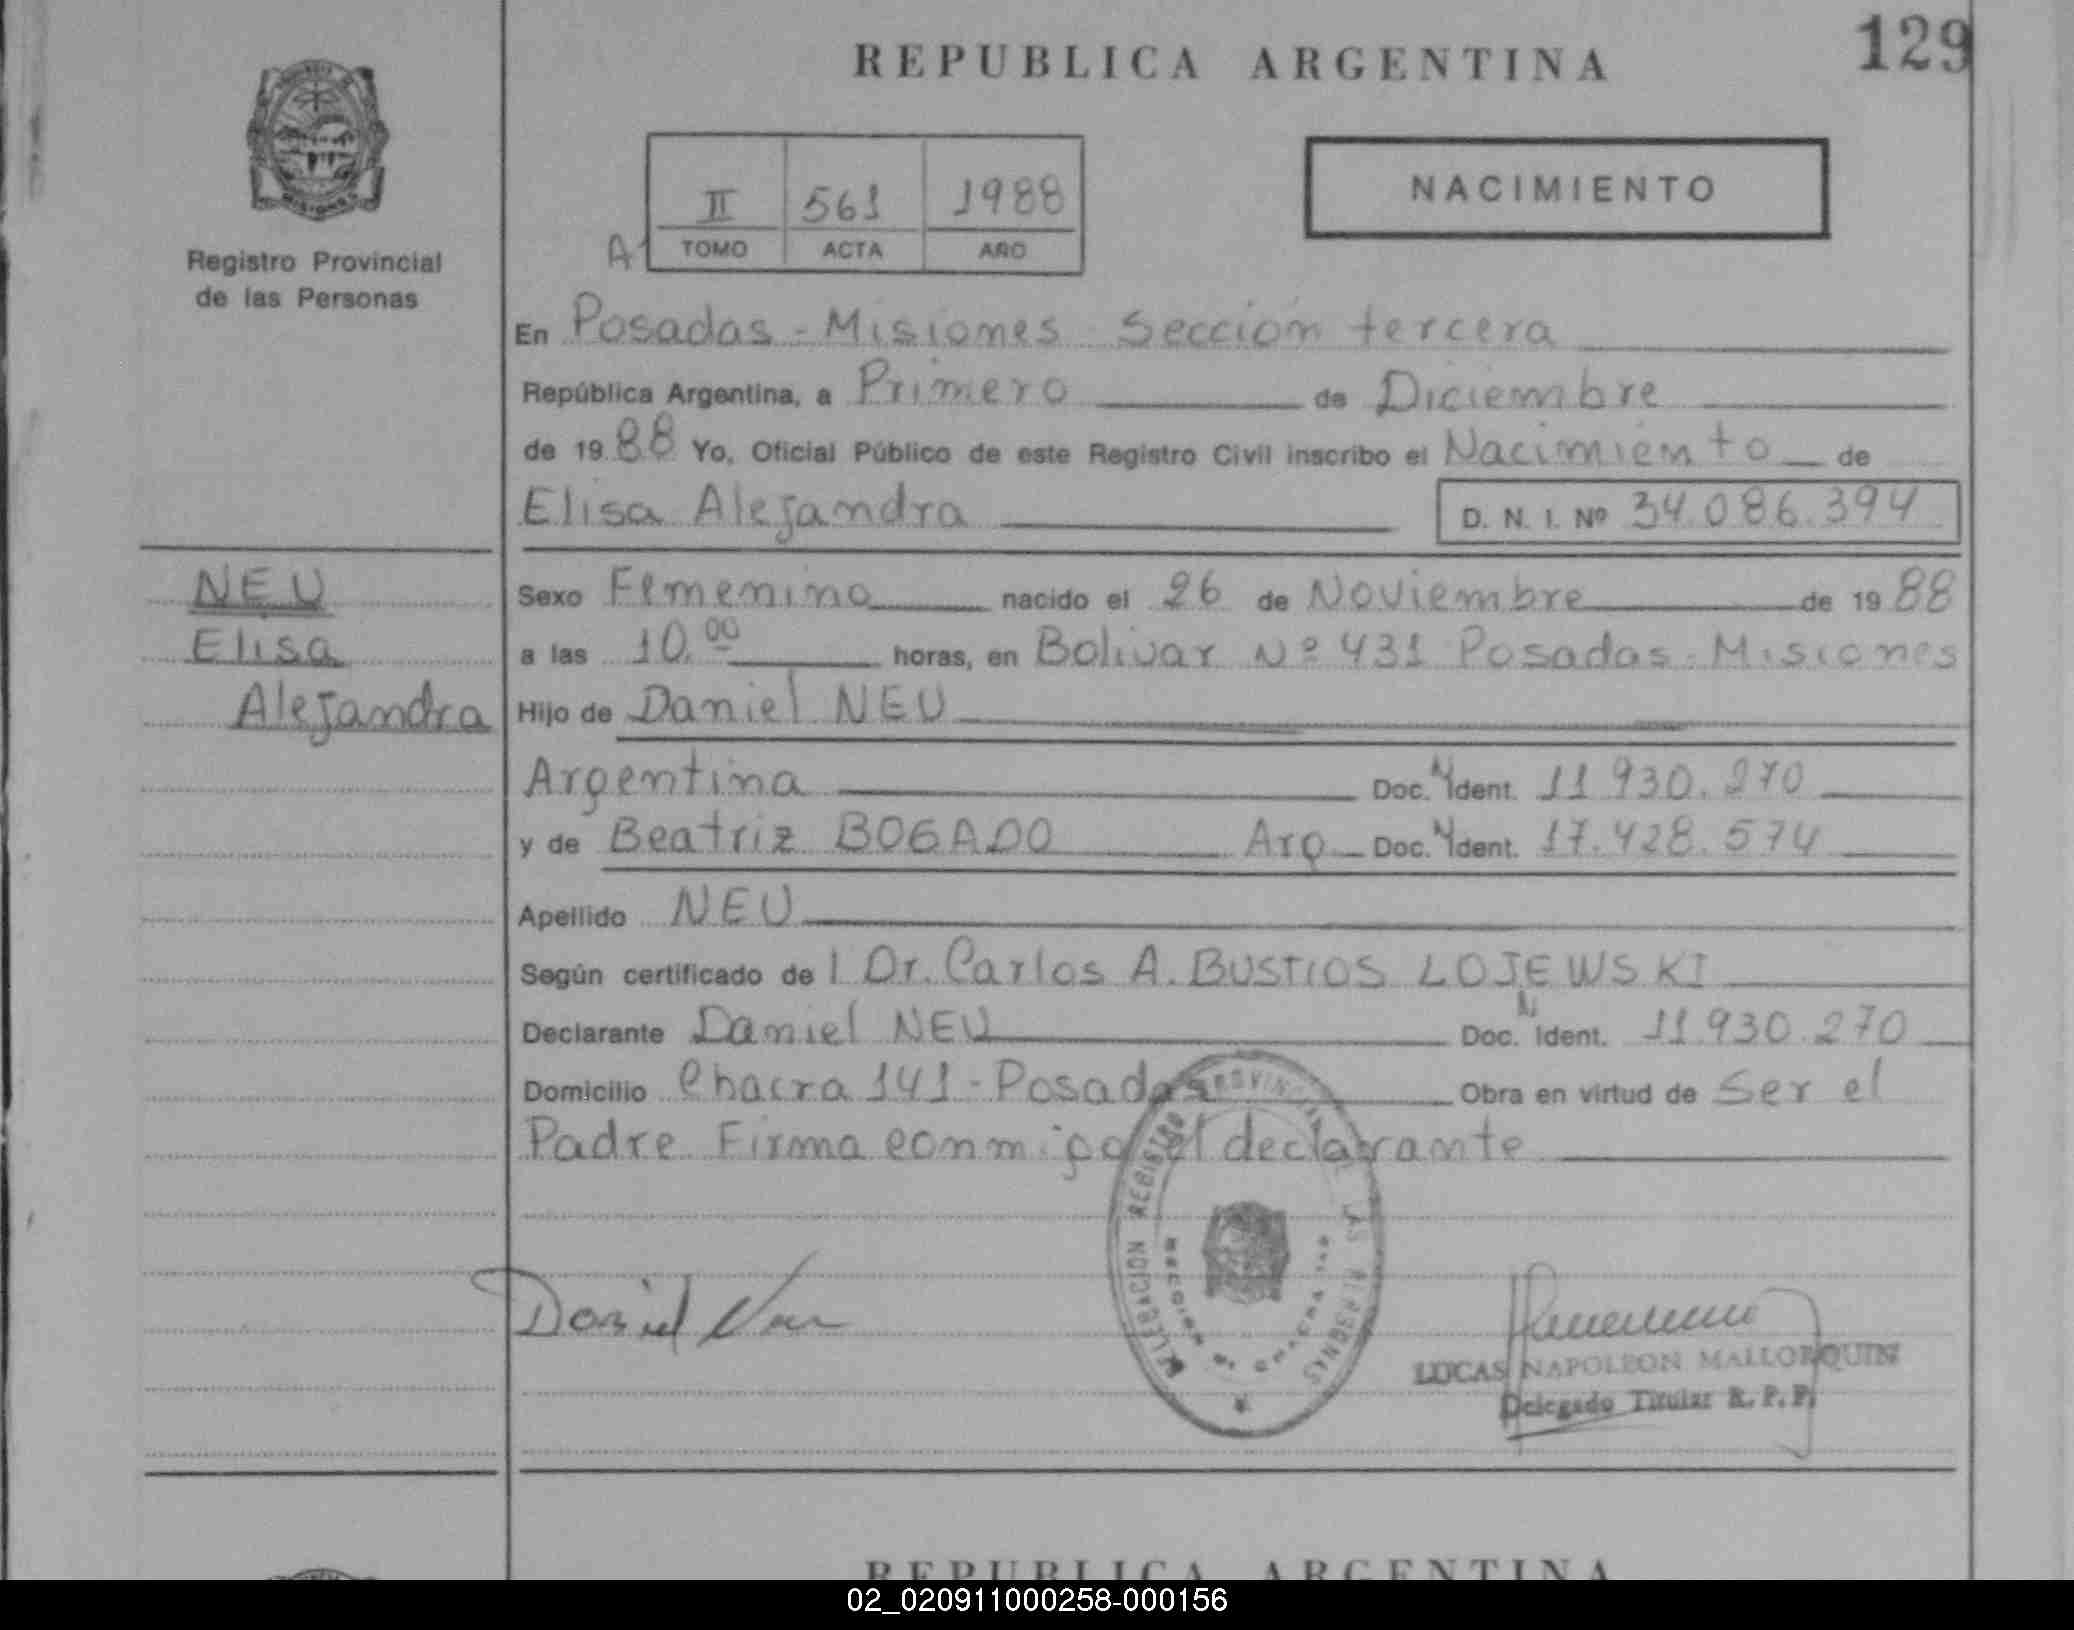 REPUBLICA ARGENTINA
129
Registro Provincial
de las Personas
NACIMIENTO
II 561 1988
A1 TOMO ACTA AÑO
En Posadas - Misiones Sección tercera
República Argentina, a Primero de Diciembre
de 19 88 Yo, Oficial Público de este Registro Civil inscribo el Nacimiento de
Elisa Alejandra D. N. I. Nº 34.086.394
NEU
Elisa
Alejandra
Sexo Femenino nacido el 26 de Noviembre de 19 88
a las 10.00 horas, en Bolivar Nº 431 Posadas - Misiones
Hijo de Daniel NEU
Argentina Doc. N Ident. 11.930.270
y de Beatriz BOGADO Arg Doc. N Ident. 17.428.574
Apellido NEU
Según certificado de l Dr. Carlos A. BUSTIOS LOJEWSKI
Declarante Daniel NEU Doc. N Ident. 11.930.270
Domicilio Chacra 141 - Posadas Obra en virtud de Ser el
Padre Firma conmigo el declarante
Daniel Neu
REGISTRO PROVINCIAL DE LAS PERSONAS
LUCAS NAPOLEON MALLORQUIN
Delegado Titular R. P. P.
REPUBLICA ARGENTINA
02_020911000258-000156